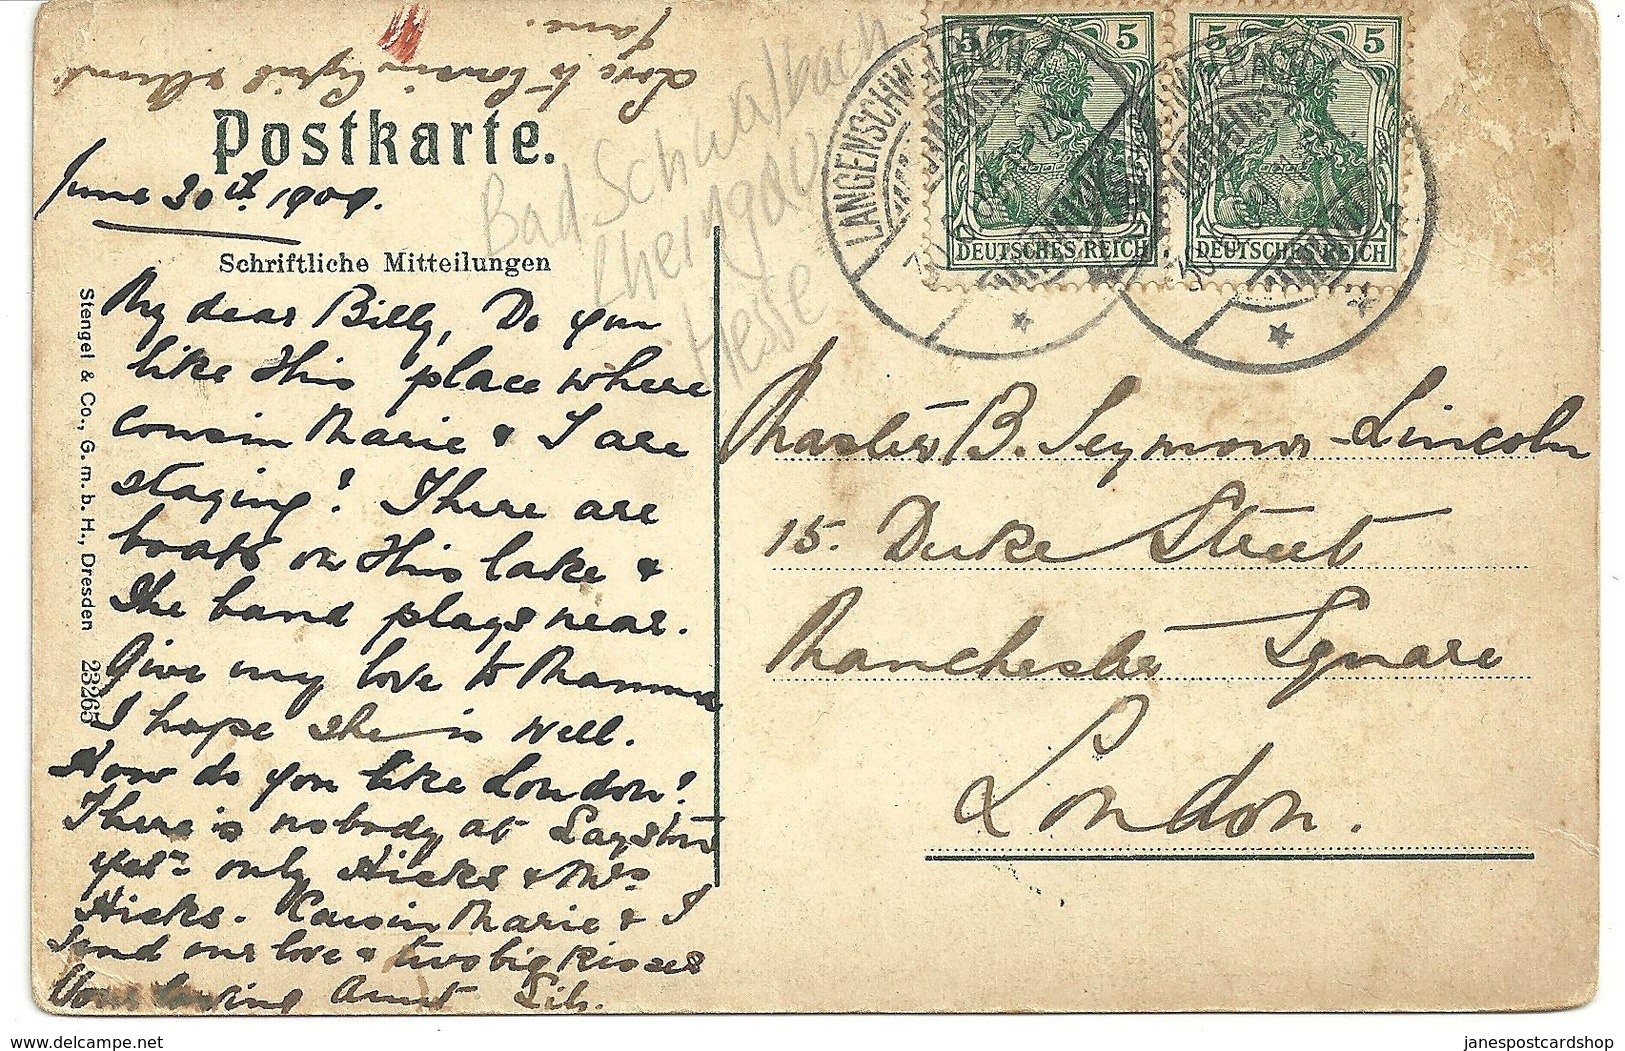 Love to Cousin Cyril & Aunt
Jane.
Postkarte.
June 30th 1909.
Schriftliche Mitteilungen
My dear Billy, Do you
like this place where
Cousin Marie & I are
staying! There are
boats on this lake &
the band plays near.
Give my love to Mamma
I hope she is well.
How do you like London!
There is nobody at Layston
yet - only Hicks & Mrs
Hicks. Cousin Marie & I
send our love & two big kisses
Your loving Aunt Lil.
Stengel & Co., G. m. b. H., Dresden 23265
Bad Schwalbach
Rheingau
Hesse
5 5
DEUTSCHES REICH
5 5
DEUTSCHES REICH
LANGENSCHWALBACH
Master B. Seymour-Lincoln
15. Duke Street
Manchester Square
London.
www.delcampe.net
janespostcardshop